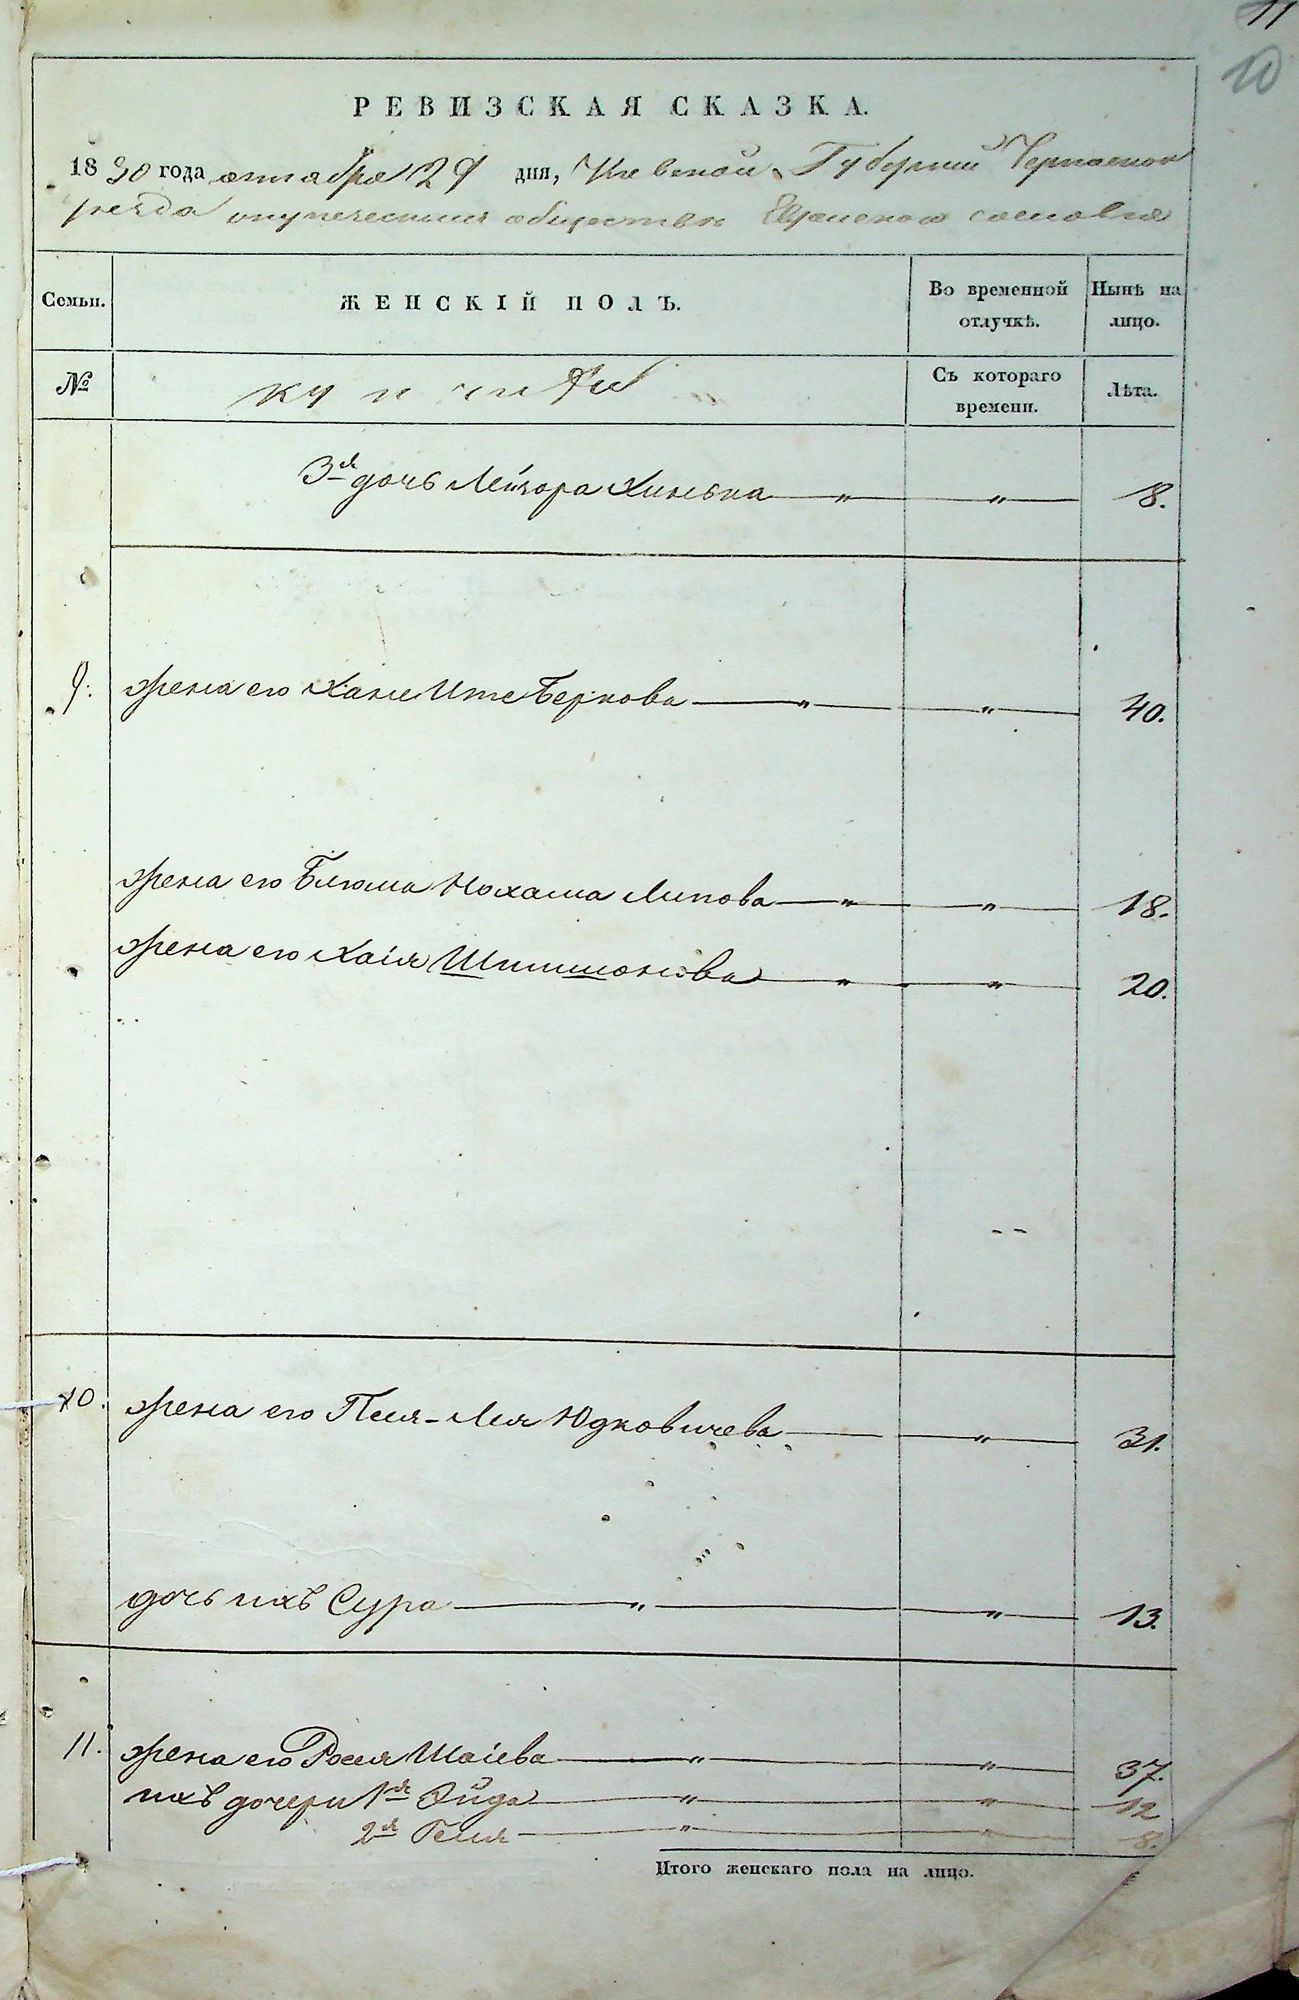 11
10
РЕВИЗСКАЯ СКАЗКА.
18 50 года октября 29 дня, Киевской Губернии Черкаскаго
уезда купеческим обществом Еврейскаго сословия
Семьи. ЖЕНСКІЙ ПОЛЪ. Во временной отлучкѣ. Нынѣ на лицо.
№ Съ котораго времени. Лѣта.
3я дочь Лейзора Хинька " " 8.
9. жена его Хане Ите Беркова " " 40.
жена его Блюма Нохама Липова " " 18.
жена его Хаія Шимшонова " " 20.
10. жена его Песя-Лея Юдковичева " 31.
дочь ихъ Сура " " 13.
11. жена его Рося Шаіева " " 37.
ихъ дочери 1я Эйда " " 12
2я Геля " " 8.
Итого женскаго пола на лицо.